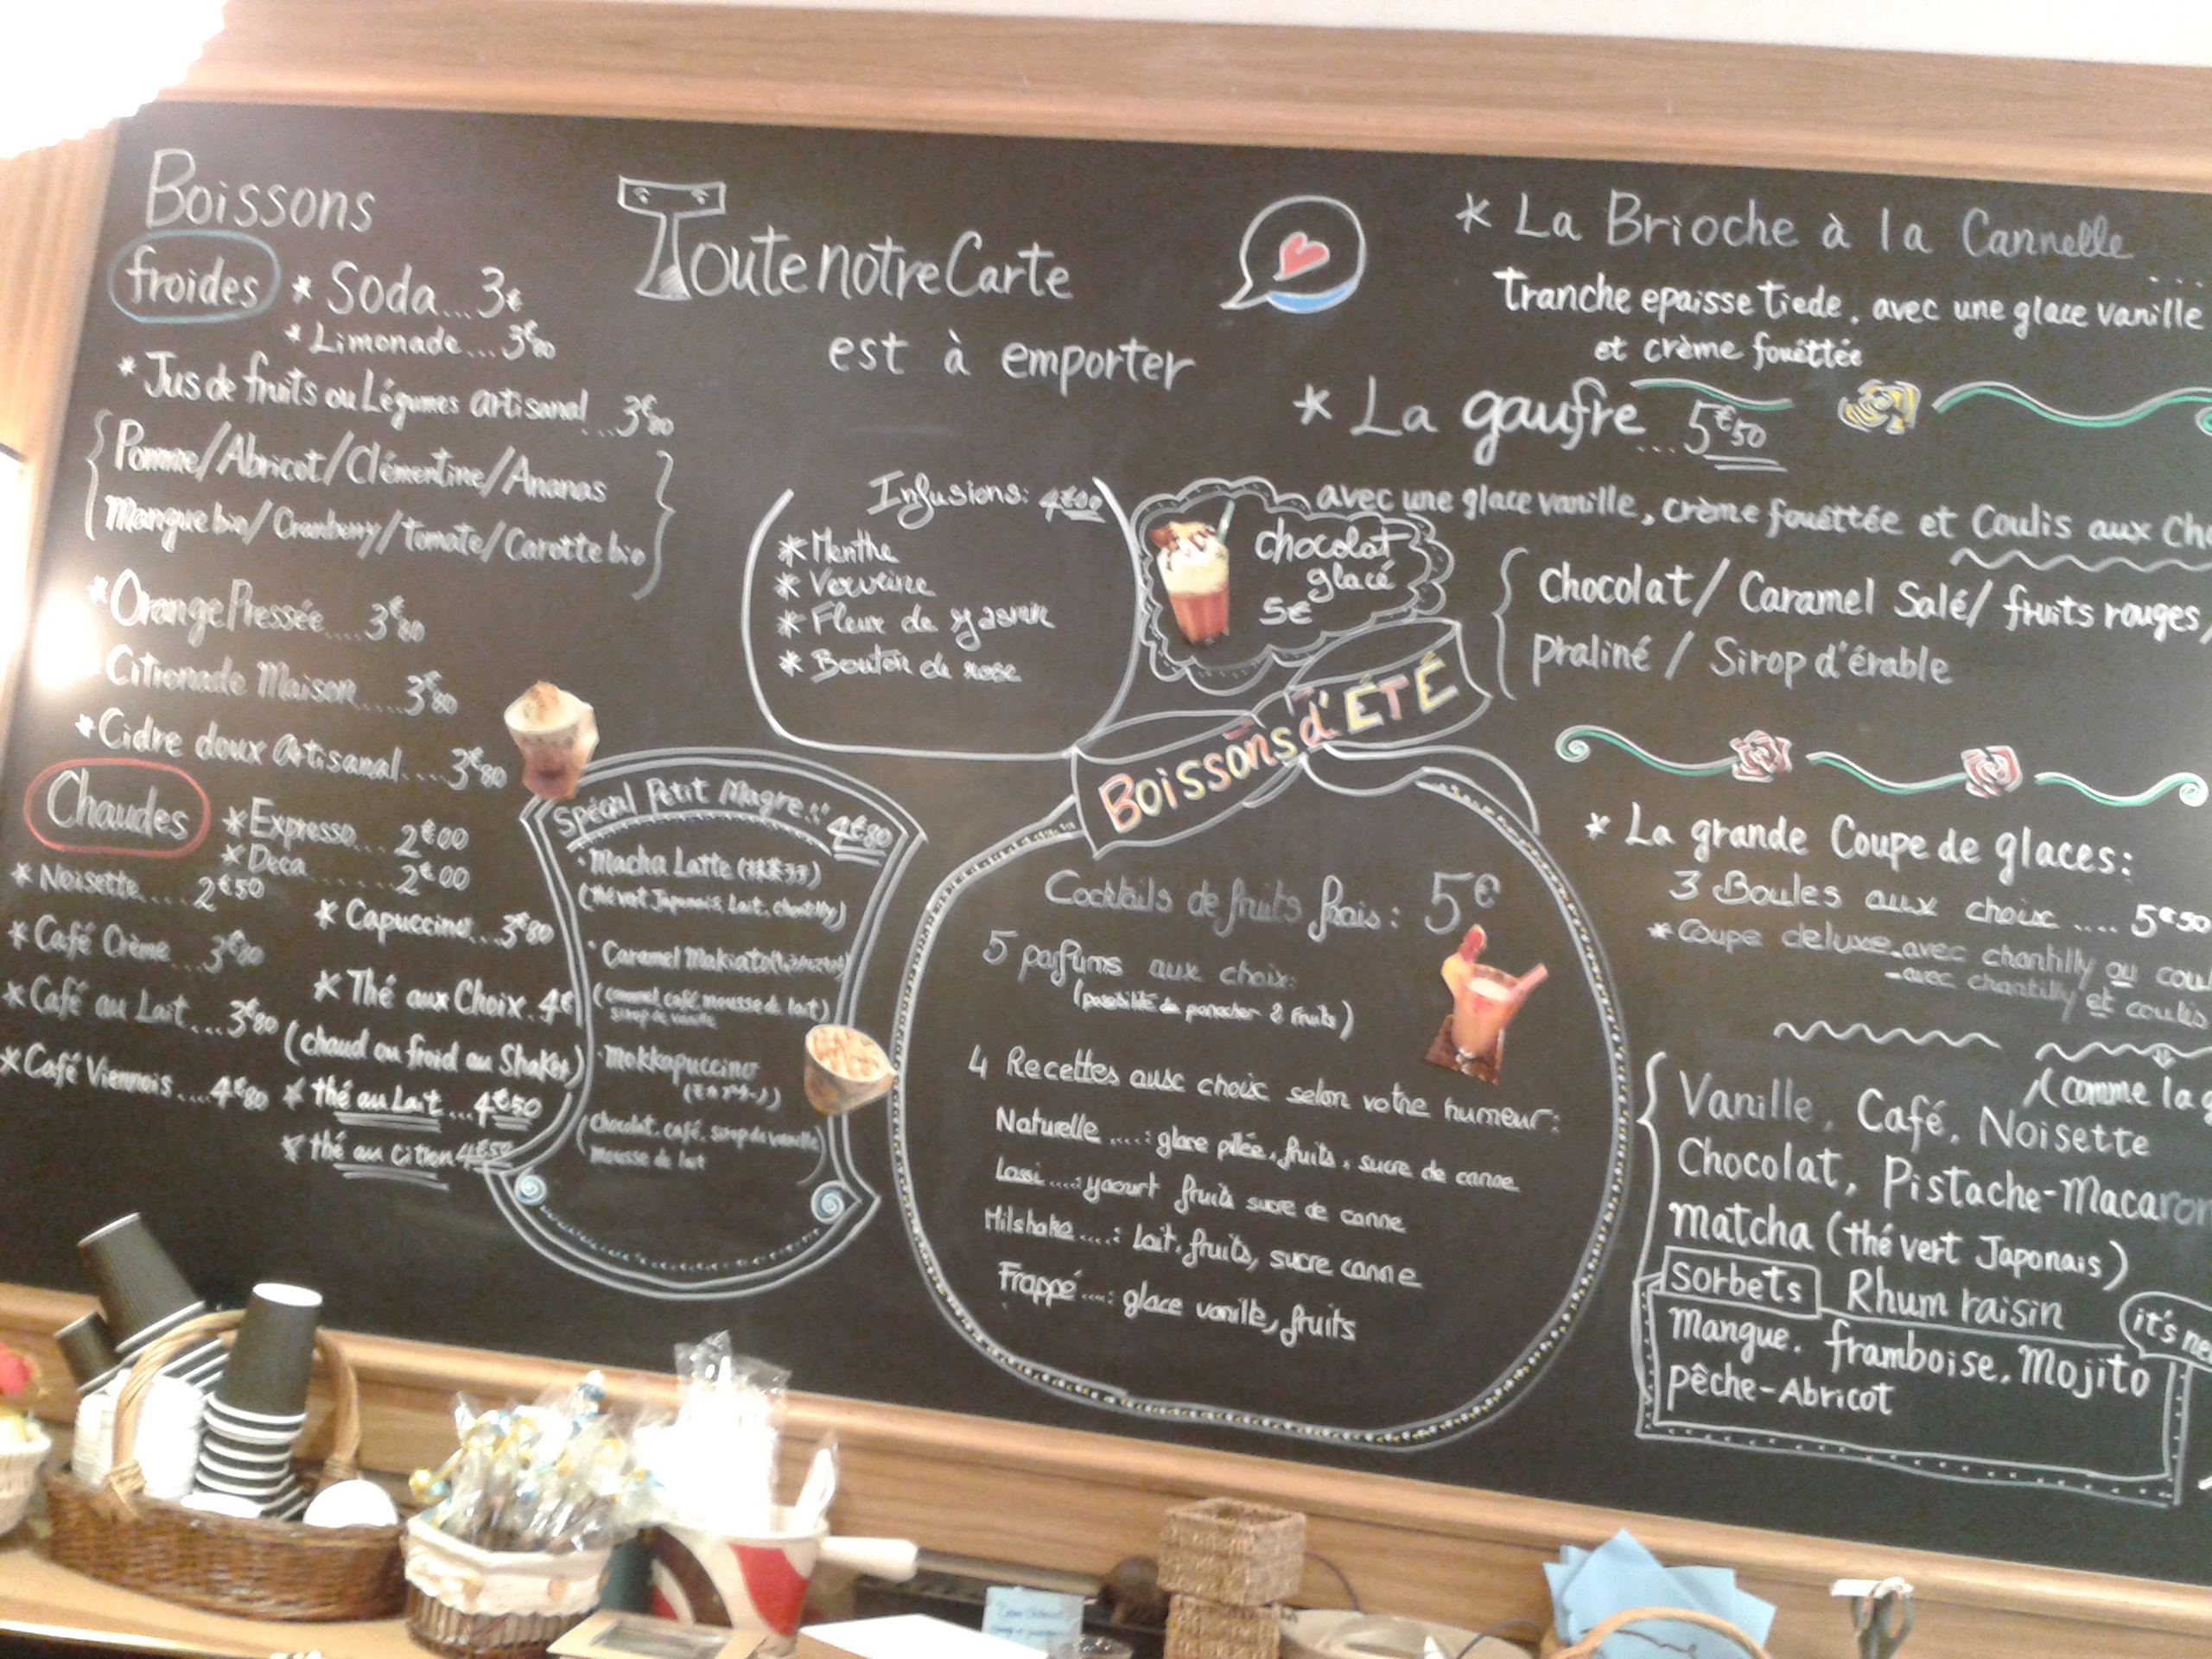 Boissons
froides
* Soda...3€
* Limonade...3€80
* Jus de fruits ou Légumes artisanal...3€80
Pomme/Abricot/Clémentine/Ananas
Mangue bio/Cranberry/Tomate/Carotte bio
* Orange Pressée....3€80
* Citronade Maison.....3€80
* Cidre doux Artisanal....3€80
Chaudes
* Expresso...2€00
* Deca......2€00
* Noisette....2€50
* Capuccino...3€80
* Café Crème...3€80
* Thé aux Choix.4€
* Café au Lait...3€80
(chaud ou froid au Shaker)
* Café Viennois...4€80
* thé au Lait...4€50
* thé au Citron 4€50
Toute notre Carte
est à emporter
Infusions: 4€00
* Menthe
* Verveine
* Fleur de Yasmin
* Bouton de rose
chocolat
glacé
5€
Spécial Petit Magre!! 4€80
· Macha Latte (抹茶ラテ)
(thé vert Japonais, Lait, chantilly)
· Caramel Makiato
(caramel, café, mousse de lait)
sirop de vanille
· Mokkapuccino
(chocolat, café, sirop de vanille
mousse de lait
Boissons d'ÉTÉ
Cocktails de fruits frais: 5€
5 parfums aux choix:
(possibilité de panacher 2 fruits)
4 Recettes aux choix selon votre humeur:
Naturelle....: glace pilée, fruits, sucre de canne
Lassi....: yaourt fruits sucre de canne
Milshake....: Lait, fruits, sucre canne
Frappé....: glace vanille, fruits
* La Brioche à la Cannelle....
Tranche epaisse tiede, avec une glace vanille
et crème fouéttée
* La gaufre...5€50
avec une glace vanille, crème fouéttée et Coulis aux
Chocolat/Caramel Salé/fruits rouges/
praliné/Sirop d'érable
* La grande Coupe de glaces:
3 Boules aux choix....5€50
* Coupe deluxe - avec chantilly ou
- avec chantilly et coulis
(comme la
Vanille, Café, Noisette
Chocolat, Pistache-Macaron
matcha (thé vert Japonais)
Rhum raisin
sorbets
it's
Mangue, framboise, Mojito
pêche-Abricot